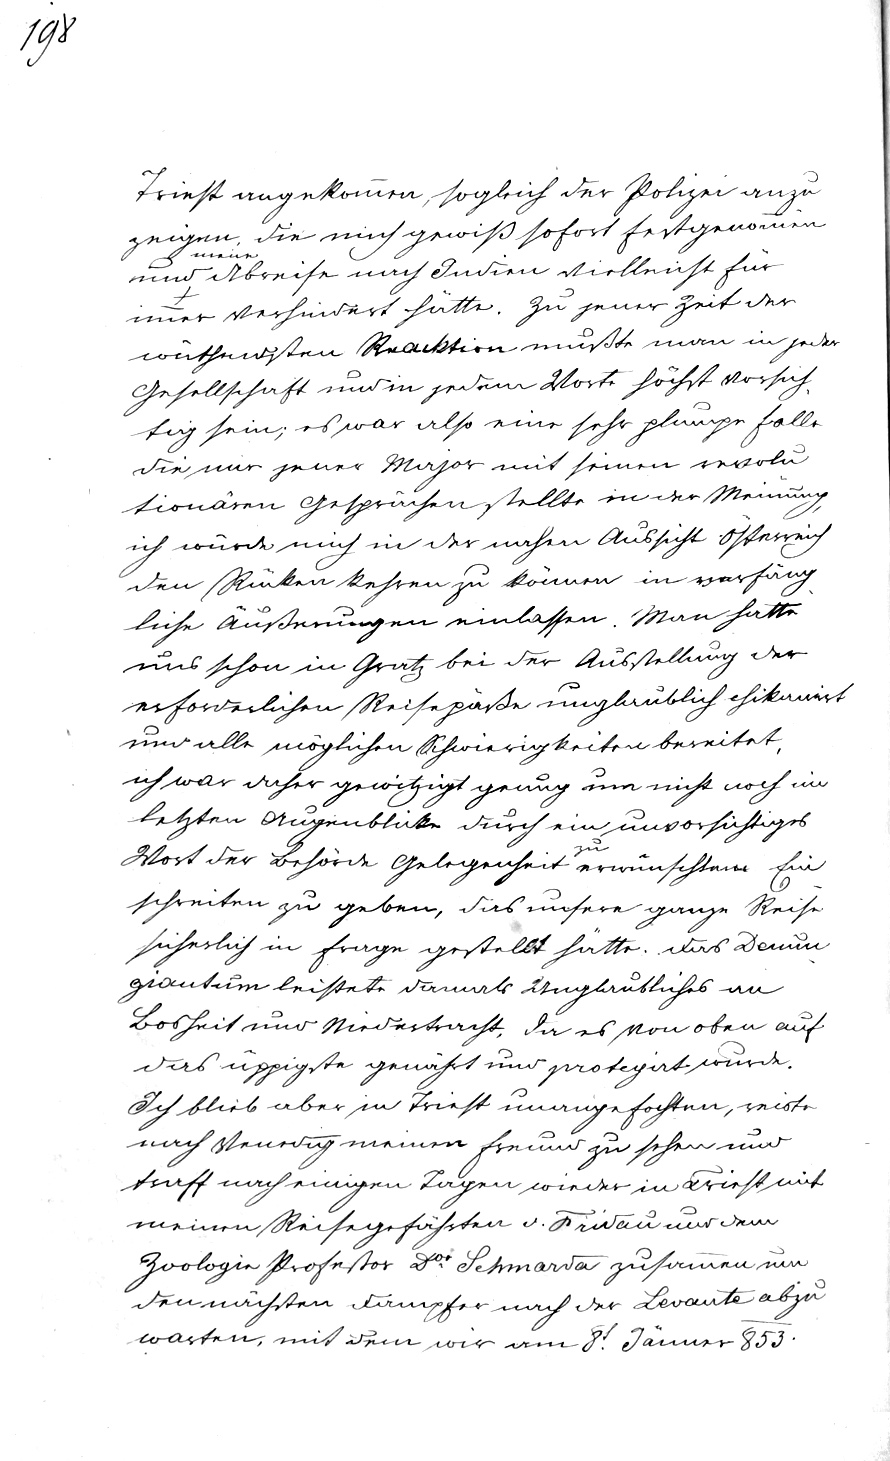 198
Triest angekom̅en, sogleich der Polizei anzu
zeigen, die mich gewiß sofort festgenom̅en
und meine Abreise nach Indien vielleicht für
im̅er verhindert hätte. Zu jener Zeit der
wüthendsten Reacktion mußte man in jeder
Gesellschaft und in jedem Worte höchst vorsich
tig sein; es war also eine sehr plumpe Falle
die mir jener Major mit seinen revolu
tionären Gesprächen stellte in der Meinung,
ich würde mich in der nahen Aussicht Österreich
den Rüken kehren zu können in verfäng
liche Äußerungen einlassen. Man hatte
uns schon in Gratz bei der Ausstellung der
erforderlichen Reisepäße unglaublich chikanirt
und alle möglichen Schwierigkeiten bereitet,
ich war daher gewitzigt genug um nicht noch im
letzten Augenblicke durch ein unvorsichtiges
Wort der Behörde Gelegenheit zu erwünschtem Ein
schreiten zu geben, das unsere ganze Reise
sicherlich in Frage gestellt hätte. Das Denun
ziantum leistete damals Unglaubliches an
Bosheit und Niedertracht, da es von oben auf
das üppigste genährt und protegirt wurde.
Ich blieb aber in Triest unangefochten, reiste
nach Venedig meinen Freund zu sehen und
traff nach einigen Tagen wieder in Triest mit
meinen Reisegefährten v. Fridau und dem
Zoologie Profeßor Dor Schmarda zusam̅en um
den nächsten Dampfer nach der Levante abzu
warten, mit dem wir am 8t. Jänner 853.